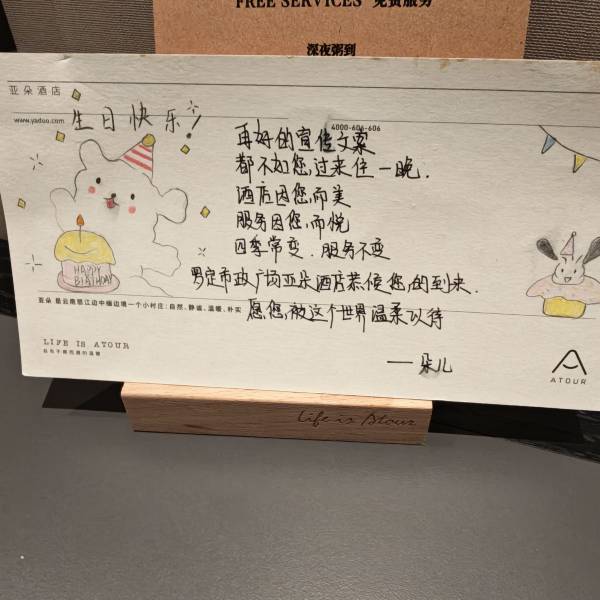 FREE SERVICES 免费服务
深夜粥到
亚朵酒店
www.yaduo.com
4000-606-606
生日快乐!
再好的宣传文案
都不如您,过来住一晚.
酒店因您,而美
服务因您,而悦
四季常变.服务不变
罗定市政广场亚朵酒店恭候您,的到来.
愿您,被这个世界温柔以待
——朵儿
HAPPY
BIRTHDAY
亚朵 是云南怒江边中缅边境一个小村庄:自然、静谧、温暖、朴实
LIFE IS ATOUR
ATOUR
Life is Atour